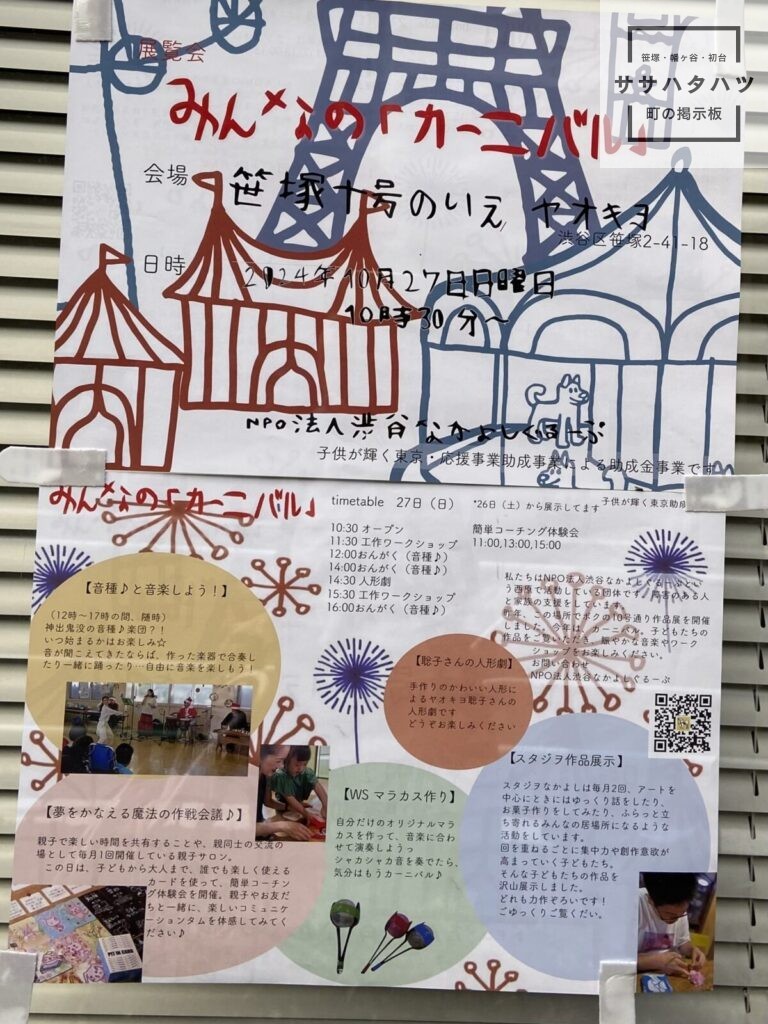 笹塚・幡ヶ谷・初台
ササハタハツ
町の掲示板
展覧会
みんなの「カーニバル」
会場 笹塚十号のいえ ヤオキヨ
渋谷区笹塚2-41-18
日時 2024年10月27日日曜日
10時30分～
NPO法人渋谷なかよしぐるーぷ
子供が輝く東京・応援事業助成事業による助成金事業です
みんなの「カーニバル」
timetable 27日（日） *26日（土）から展示してます
子供が輝く東京助成
10:30 オープン
11:30 工作ワークショップ
12:00おんがく（音種♪）
14:00おんがく（音種♪）
14:30 人形劇
15:30 工作ワークショップ
16:00おんがく（音種♪）
簡単コーチング体験会
11:00,13:00,15:00
私たちはNPO法人渋谷なかよしぐるーぷとい
う西原で活動している団体です。障害のある人
と家族の支援をしています。
昨年、この場所でボクの10号通り作品展を開催
しました。今年は、カーニバル。子どもたちの
作品をご覧いただき、賑やかな音楽やワーク
ショップをお楽しみください。
お問い合わせ
NPO法人渋谷なかよしぐるーぷ
【音種♪と音楽しよう！】
（12時〜17時の間、随時）
神出鬼没の音種♪楽団？！
いつ始まるかはお楽しみ☆
音が聞こえてきたならば、作った楽器で合奏し
たり一緒に踊ったり…自由に音楽を楽しもう！
【聡子さんの人形劇】
手作りのかわいい人形に
よるヤオキヨ聡子さんの
人形劇です
どうぞお楽しみください
【夢をかなえる魔法の作戦会議♪】
親子で楽しい時間を共有することや、親同士の交流の
場として毎月1回開催している親子サロン。
この日は、子どもから大人まで、誰でも楽しく使える
カードを使って、簡単コーチン
グ体験会を開催。親子やお友だ
ちと一緒に、楽しいコミュニケ
ーションタムを体感してみてく
ださい♪
【WS マラカス作り】
自分だけのオリジナルマラ
カスを作って、音楽に合わ
せて演奏しようっ
シャカシャカ音を奏でたら、
気分はもうカーニバル♪
【スタジヲ作品展示】
スタジヲなかよしは毎月2回、アートを
中心にときにはゆっくり話をしたり、
お菓子作りをしてみたり、ふらっと立
ち寄れるみんなの居場所になるような
活動をしています。
回を重ねるごとに集中力や創作意欲が
高まっていく子どもたち。
そんな子どもたちの作品を
沢山展示しました。
どれも力作ぞろいです！
ごゆっくりご覧くだい。